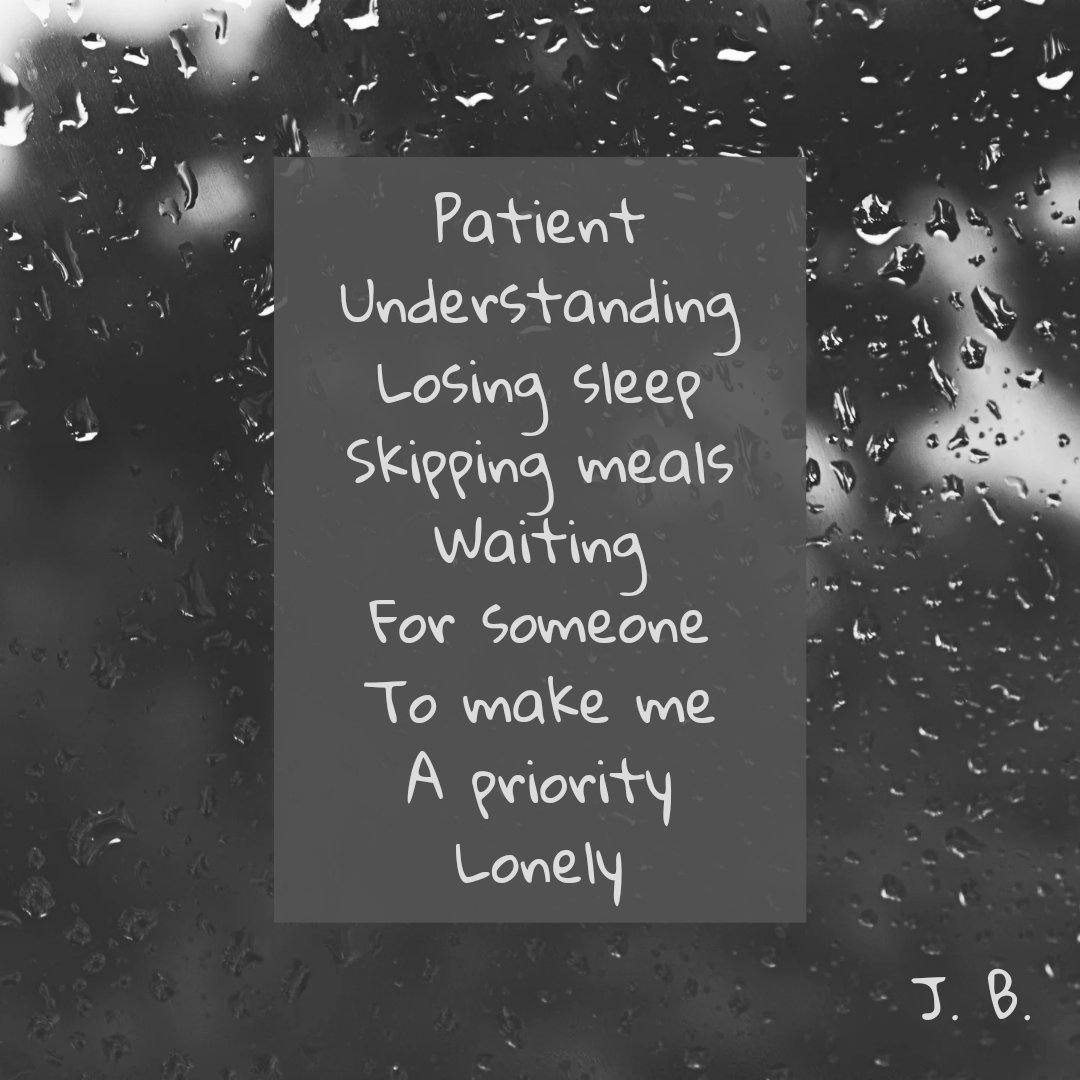 Patient
Understanding
Losing sleep
Skipping meals
Waiting
For someone
To make me
A priority
Lonely
J. B.